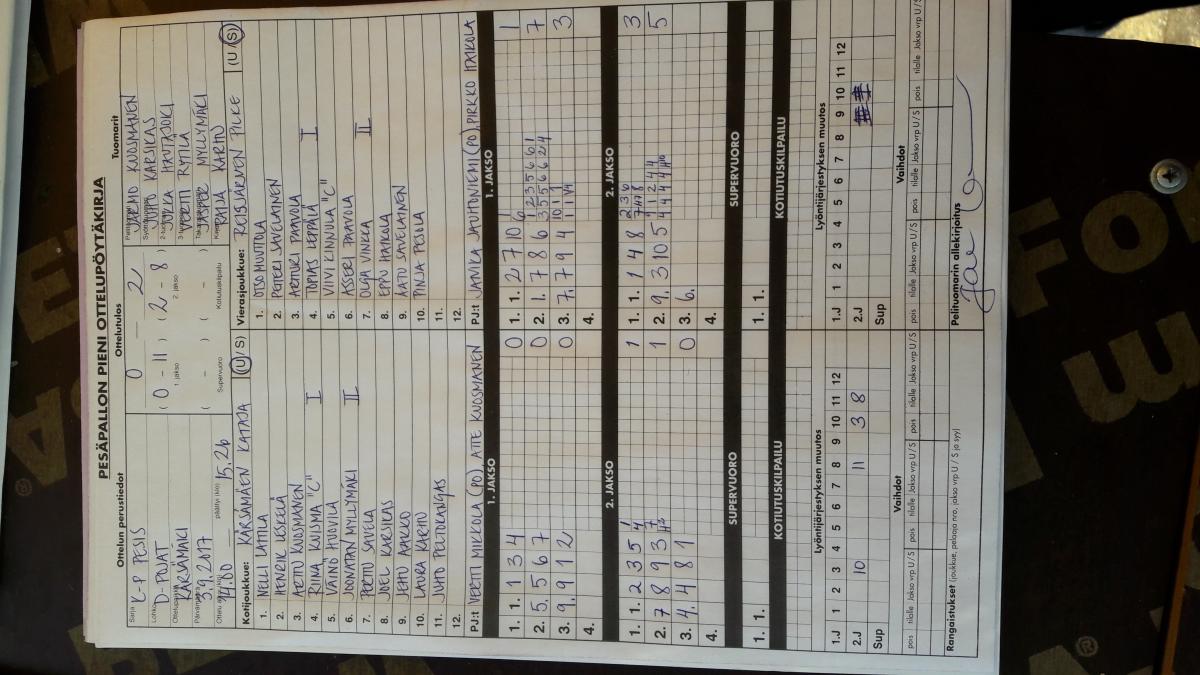 PESÄPALLON PIENI OTTELUPÖYTÄKIRJA
Ottelun perustiedot
Ottelutulos
Tuomarit
Sarja
K-P PESIS
Lohko
D-POJAT
Ottelupaikka
KÄRSÄMÄKI
Päivämäärä
3.9.2017
14.00
päättyi (klo)
15.26
0 — 2
( 0 - 11 ) ( 2 - 8 )
1. jakso
2. jakso
( - ) ( - )
Supervuoro
Kotiutuskilpailu
JARMO KUOSMANEN
JUHO KARSIKAS
JUKKA HAUTAJOKI
VERTTI RYTILÄ
JASPER MYLLYMÄKI
RAIJA KARHU
Kotijoukkue: KÄRSÄMÄEN KATAJA (U / S)
1. NELLI LATTILA
2. HENRIK LESKELÄ
3. ARTTU KUOSMANEN
4. RIINA KUISMA "C" I
5. VÄINÖ HUOVILA
6. JOONATAN MYLLYMÄKI II
7. PERTTU SAVELA
8. JOEL KARSIKAS
9. JEHU AAKKO
10. LAURA KARHU
11. JUHO PELTOKANGAS
12.
PJ:t VEETI MIKKOLA (PO), ATTE KUOSMANEN
Vierasjoukkue: REISJÄRVEN PILKE (U / S)
1. OTSO MUUTTOLA
2. PETTERI SAVELAINEN
3. ARTTURI PAAVOLA
4. TOMAS LEPPÄLÄ I
5. VIIVI KINNULA "C"
6. ASSERI PAAVOLA
7. OLGA VINKKA II
8. EPPU HAIKOLA
9. AATU SAVELAINEN
10. PINJA PESOLA
11.
12.
PJ:t JANILA JAUHONIEMI (PO), PIRKKO HAIKOLA
1. JAKSO
1. 1. 1 3 4 0
2. 5. 5 6 7 0
3. 9. 9 1 2 0
4.
2. JAKSO
1. 1. 2 3 5 1
2. 7 8 9 3 1
3. 4. 4 8 1 0
4.
SUPERVUORO
1. 1.
KOTIUTUSKILPAILU
1. JAKSO
1. 1. 2 7 10 1
2. 1. 7 8 6 7
3. 7. 7 9 4 3
4.
2. JAKSO
1. 1. 1 4 8 3
2. 9. 3 10 5 5
3. 6.
4.
SUPERVUORO
1. 1.
KOTIUTUSKILPAILU
Lyöntijärjestyksen muutos
1.J 1 2 3 4 5 6 7 8 9 10 11 12
2.J 10 11 3 8
Sup
Vaihdot
pois tilalle Jakso vrp U / S pois tilalle Jakso vrp U / S pois tilalle Jakso vrp U / S
Rangaistukset (joukkue, pelaaja nro, jakso vrp U / S ja syy)
Lyöntijärjestyksen muutos
1.J 1 2 3 4 5 6 7 8 9 10 11 12
2.J
Sup
Vaihdot
pois tilalle Jakso vrp U / S pois tilalle Jakso vrp U / S pois tilalle Jakso vrp U / S
Pelituomarin allekirjoitus